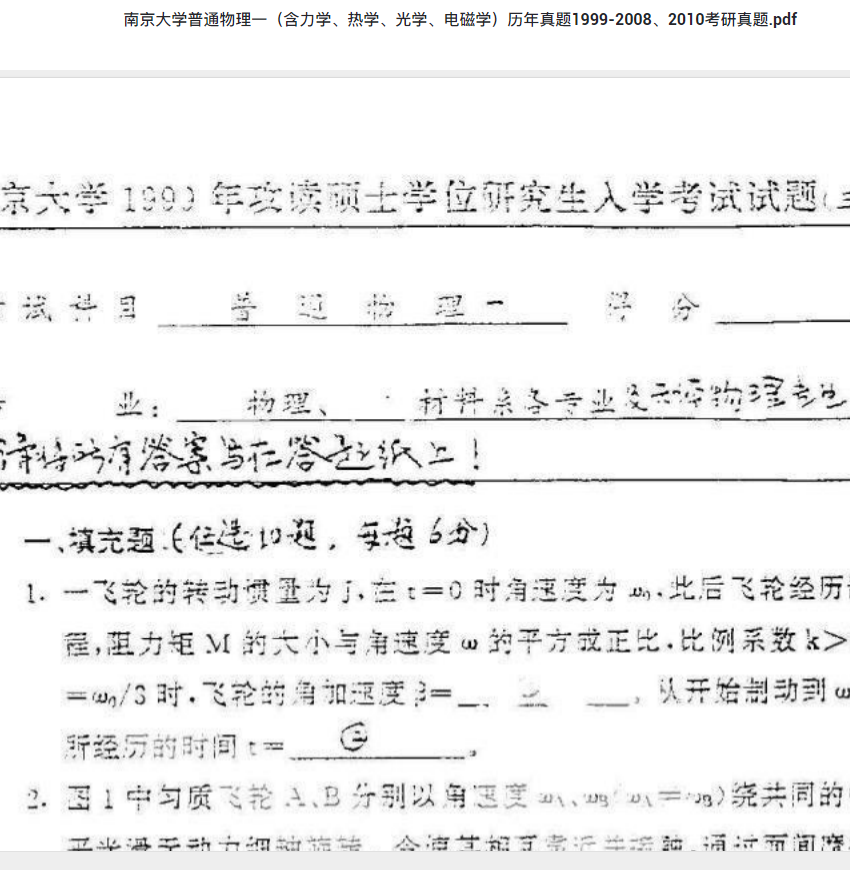 南京大学普通物理一（含力学、热学、光学、电磁学）历年真题1999-2008、2010考研真题.pdf
京大学 1999 年攻读硕士学位研究生入学考试试题(三
试科目 普通物理一 得分
业: 物理、 材料系各专业及 物理考生
所有答案写在答题纸上!
一、填充题:(任选10题, 每题6分)
1. 一飞轮的转动惯量为J,在t=0时角速度为ω₀.此后飞轮经历
程,阻力矩M的大小与角速度ω的平方成正比.比例系数k>
=ω₀/3时.飞轮的角加速度β=__ ① __, 从开始制动到ω
所经历的时间t=__②__。
2. 图1中匀质飞轮A、B分别以角速度ω_A、ω_B(ω_A=ω_B)绕共同的